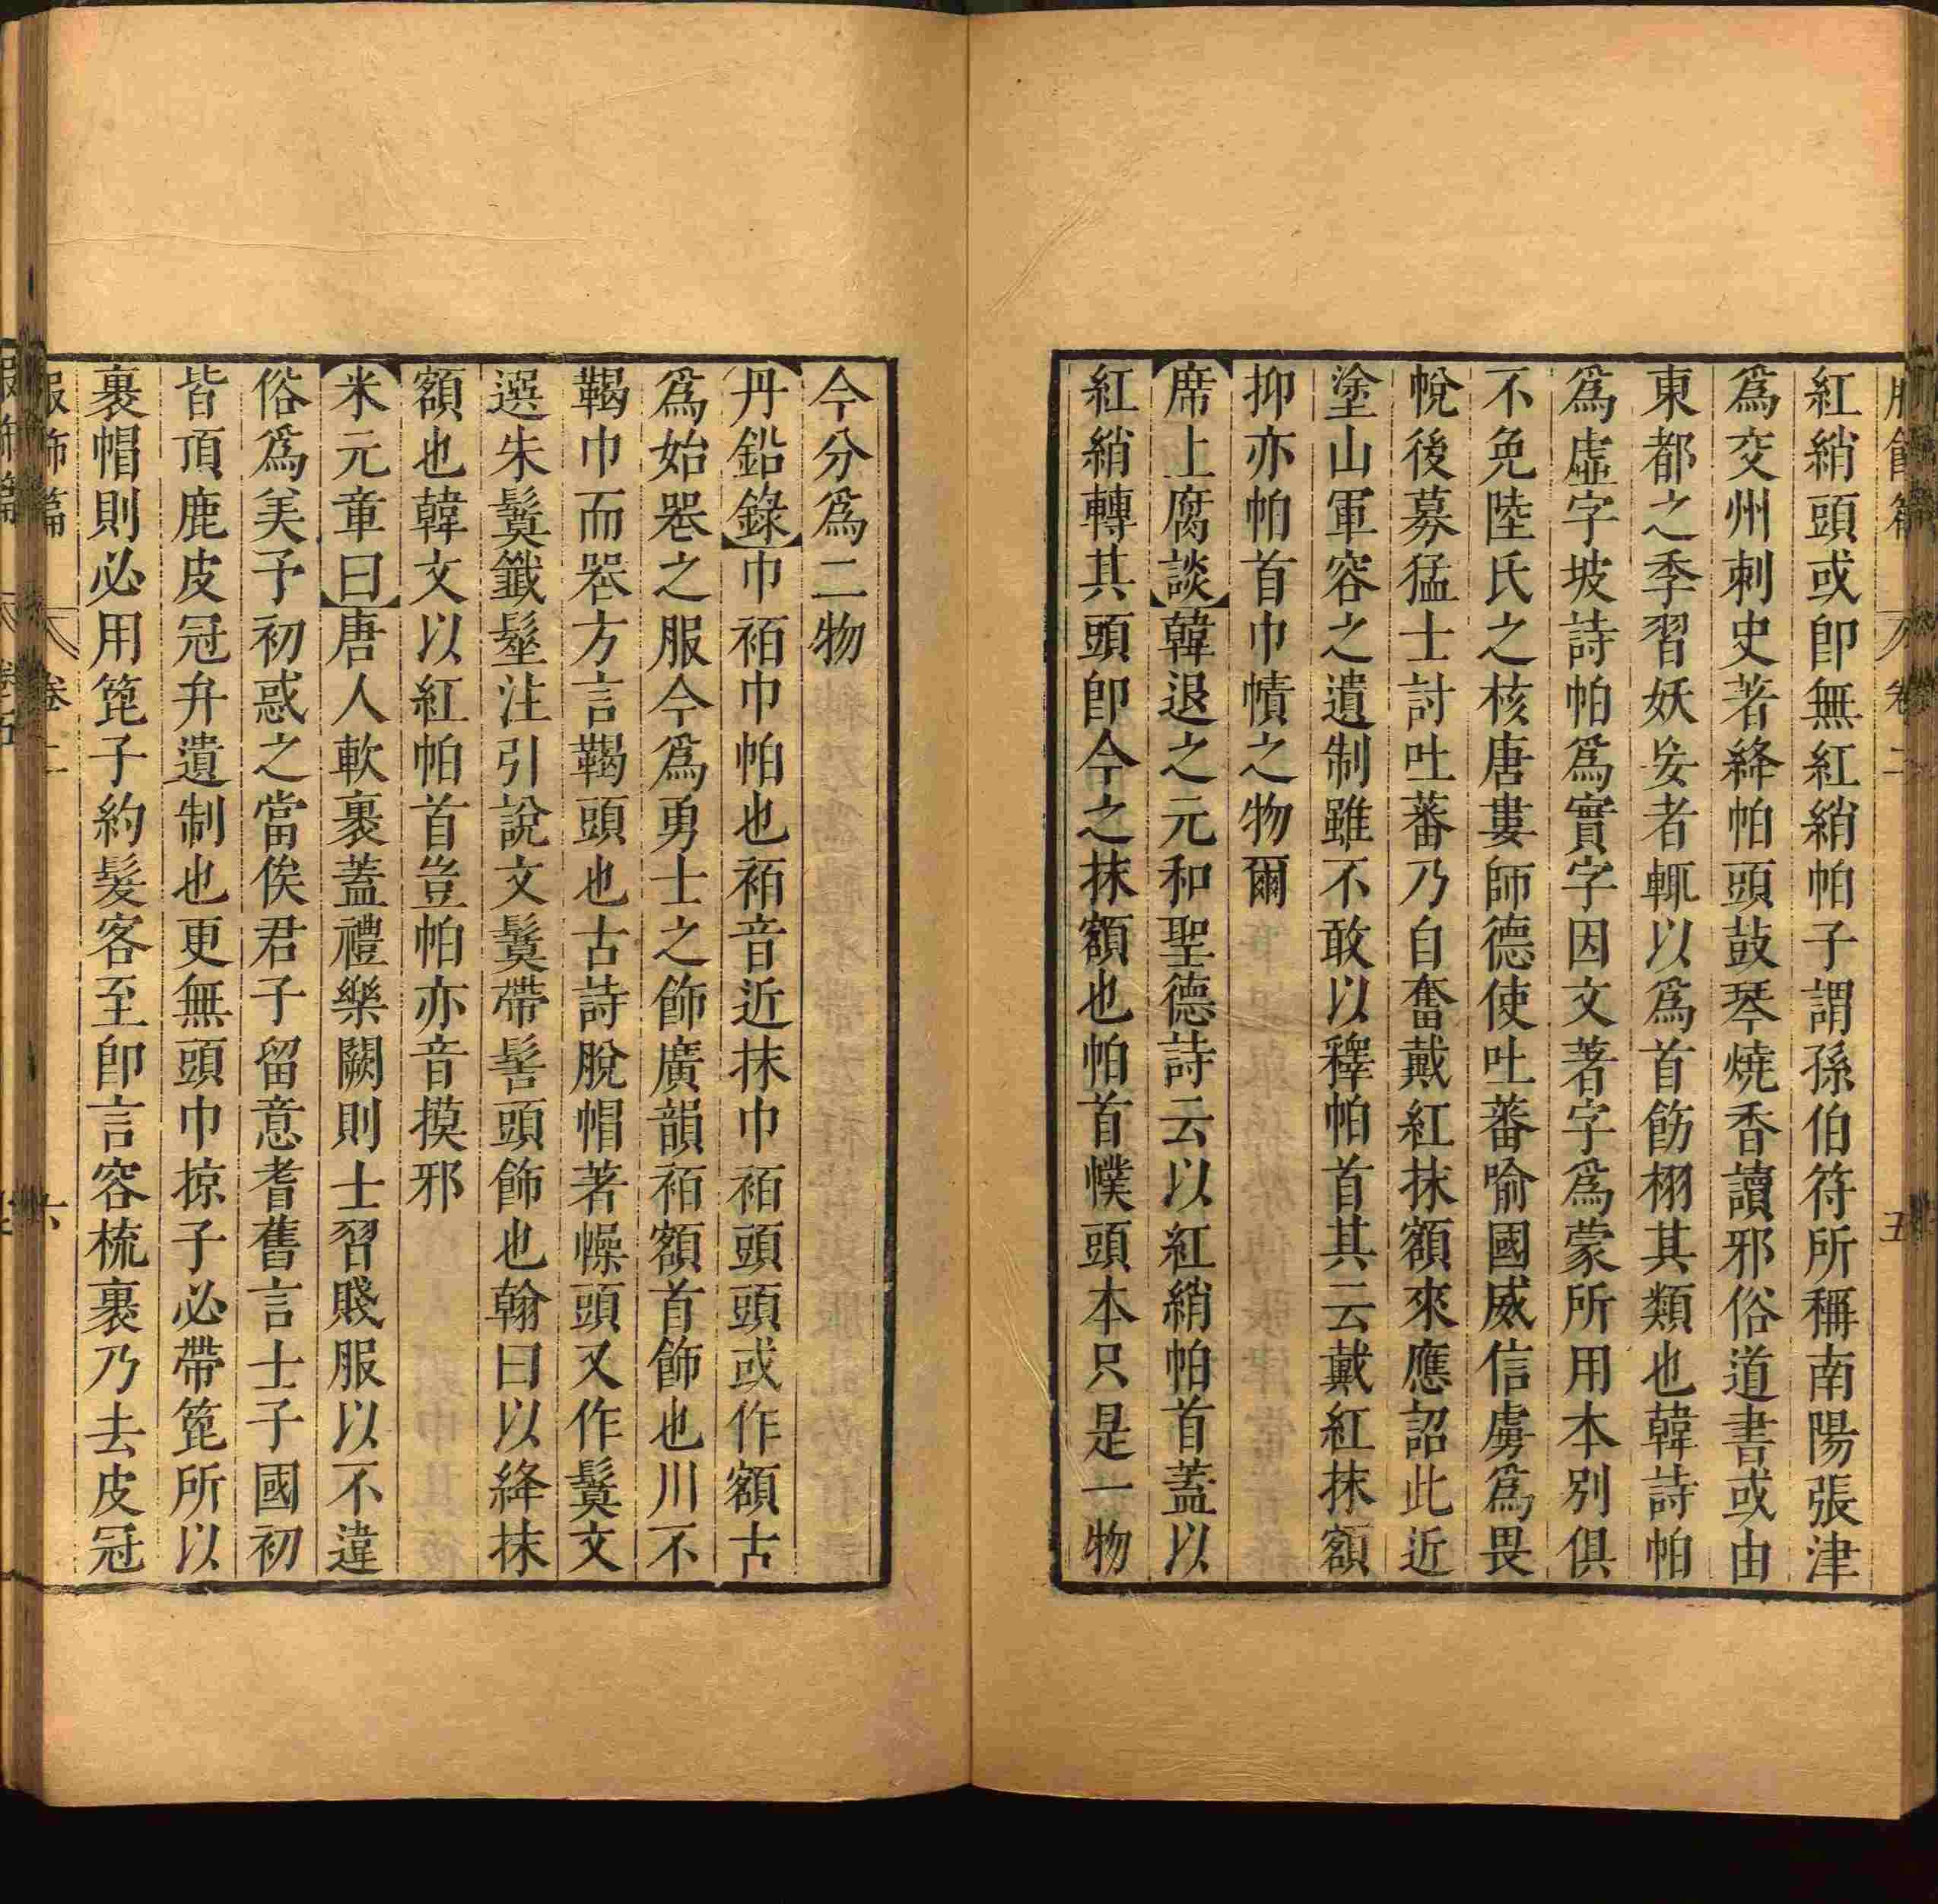 紅綃頭或卽無紅綃帕子謂孫伯符所稱南陽張津
爲交州刺史著絳帕頭鼓琴燒香讀邪俗道書或由
東都之季習妖妄者輒以爲首飭栩其類也韓詩帕
爲虛字坡詩帕爲實字因文著字爲蒙所用本別俱
不免陸氏之核唐婁師德使吐蕃喻國威信虜爲畏
悅後募猛士討吐蕃乃自奮戴紅抹額來應詔此近
塗山軍容之遺制雖不敢以釋帕首其云戴紅抹額
抑亦帕首巾幘之物爾
席上腐談韓退之元和聖德詩云以紅綃帕首蓋以
紅綃轉其頭卽今之抹額也帕首幞頭本只是一物
今分爲二物
丹鉛錄巾袹巾帕也袹音近抹巾袹頭頭或作額古
爲始喪之服今爲勇士之飾廣韻袹額首飾也川不
鞨巾而喪方言鞨頭也古詩脫帽著幧頭又作鬕文
選朱鬕䰐髽注引說文鬕帶髻頭飾也翰曰以絳抹
額也韓文以紅帕首豈帕亦音摸邪
米元章曰唐人軟裹蓋禮樂闕則士習賤服以不違
俗爲美予初惑之當俟君子留意耆舊言士子國初
皆頂鹿皮冠弁遺制也更無頭巾掠子必帶篦所以
裹帽則必用篦子約髮客至卽言容梳裹乃去皮冠
服飾篇 卷二 六